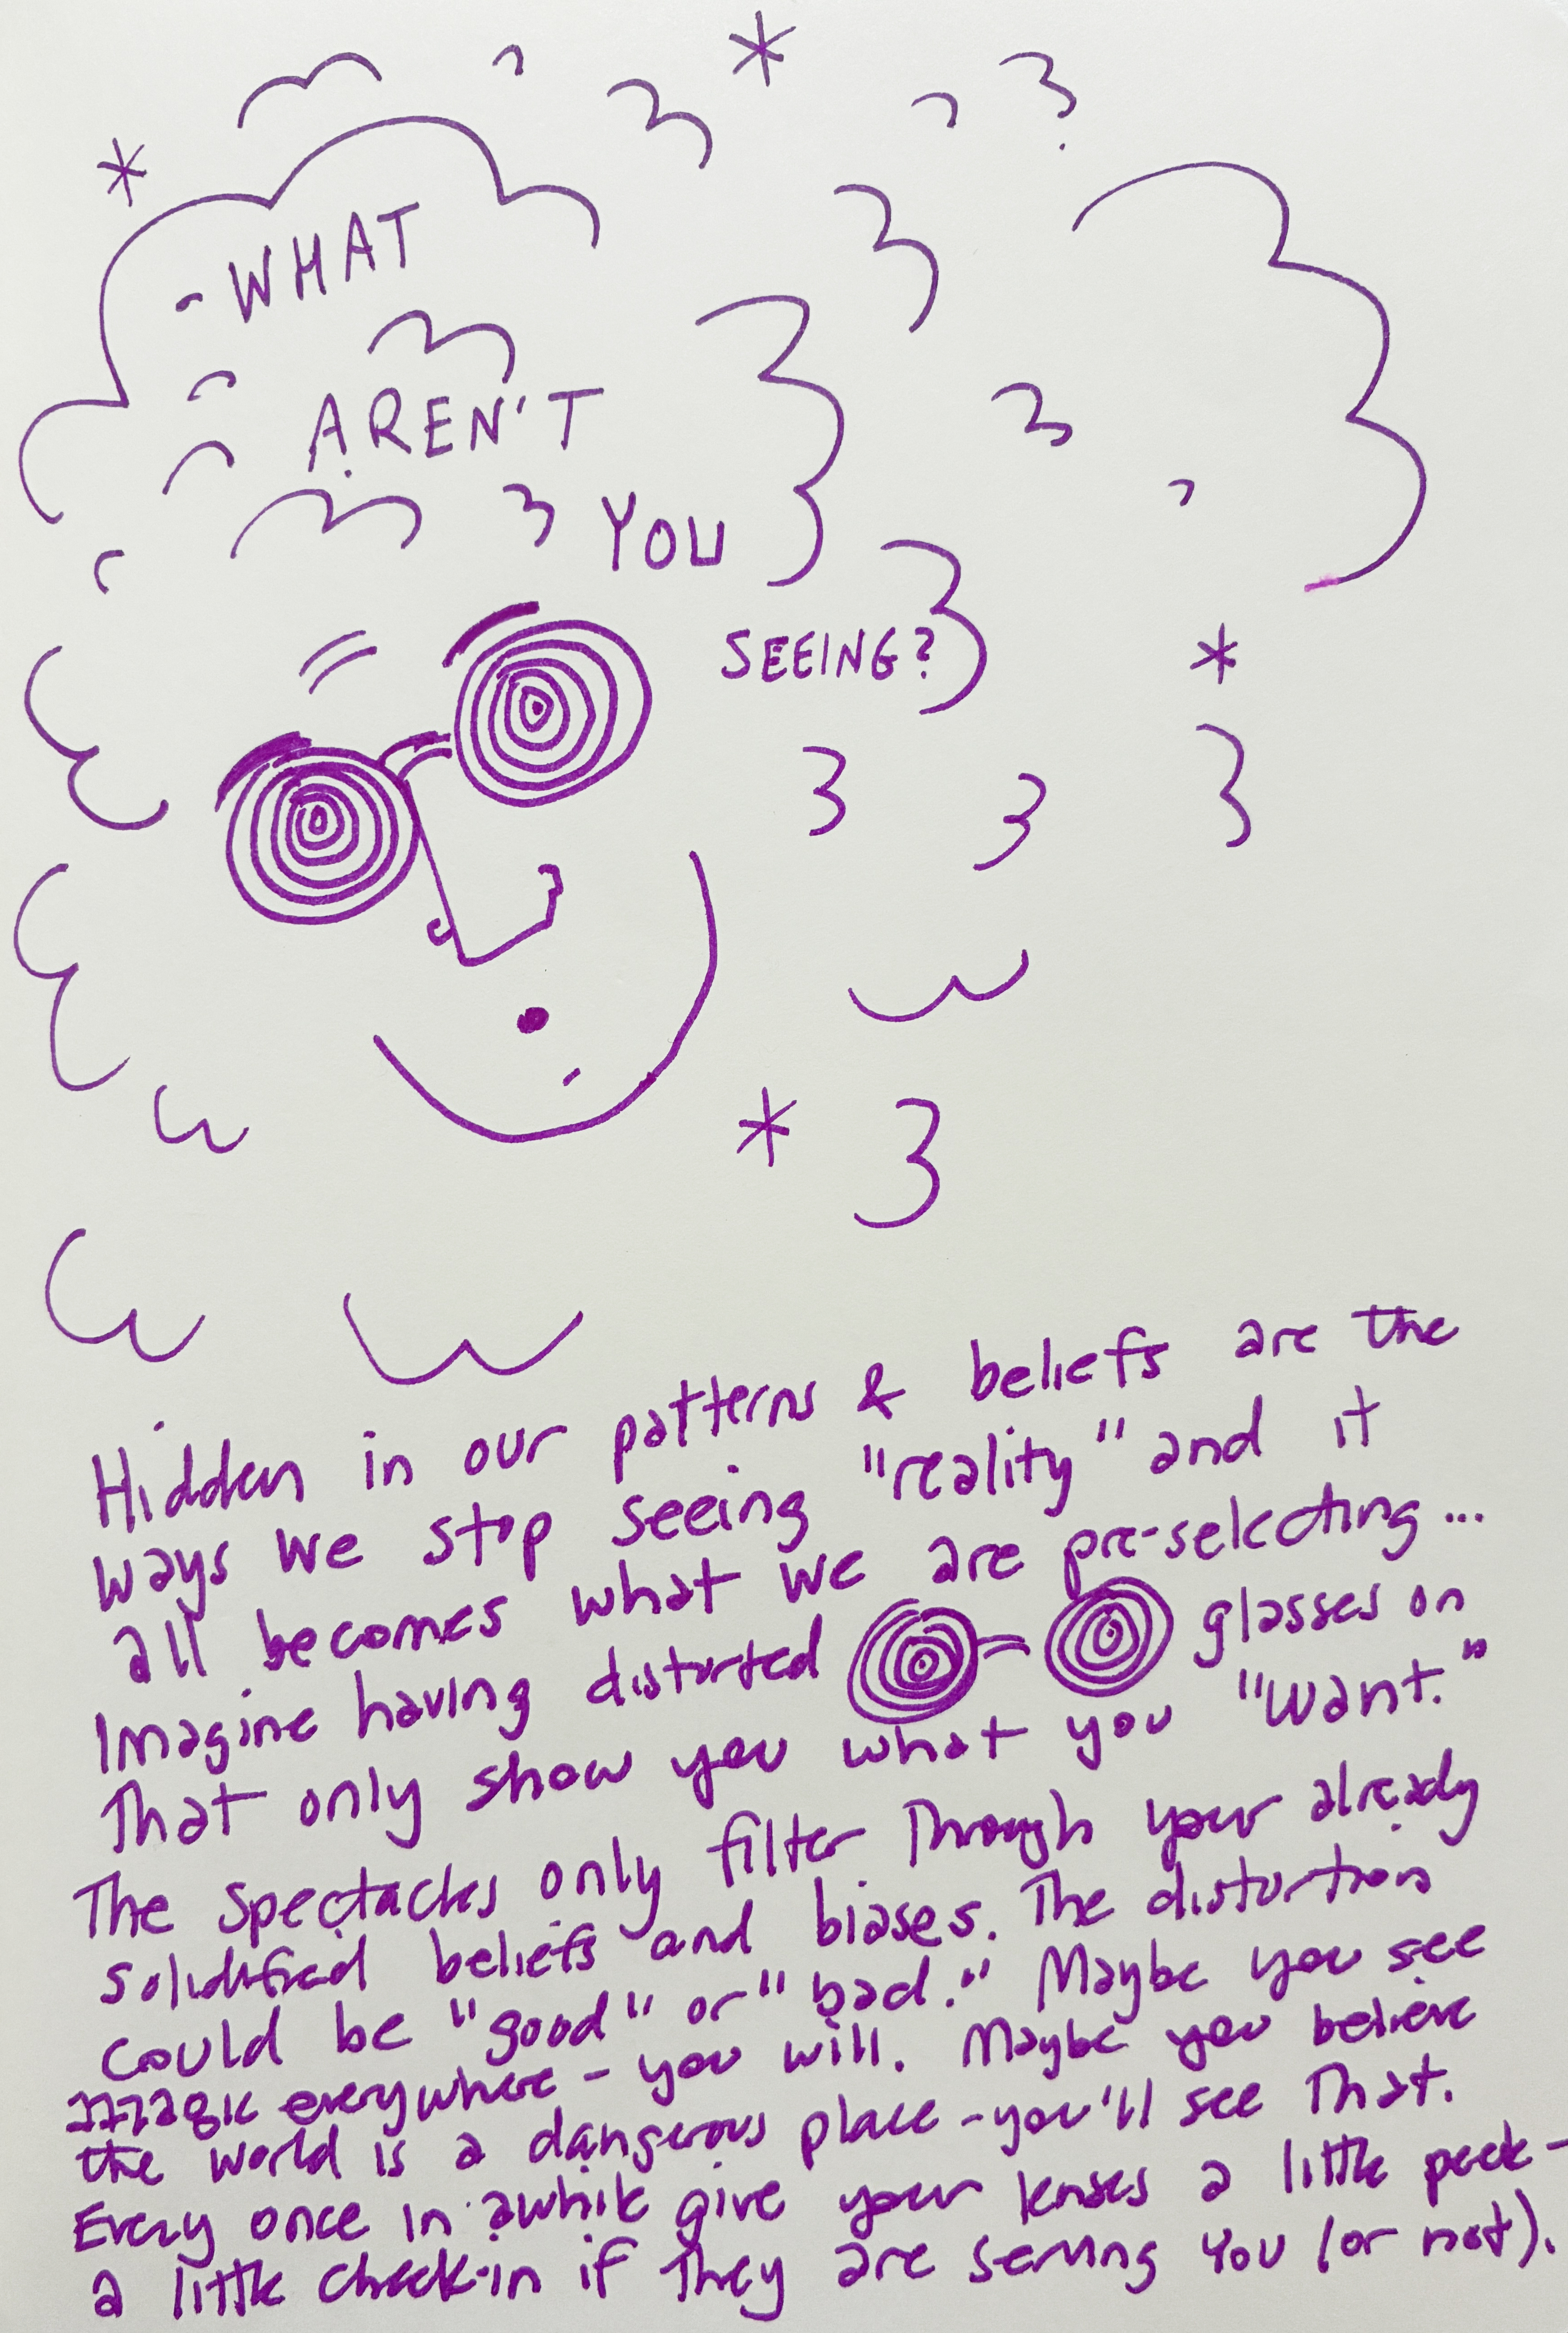 -WHAT
AREN'T
YOU
SEEING?
Hidden in our patterns & beliefs are the
ways we stop seeing "reality" and it
all becomes what we are pre-selecting...
Imagine having distorted glasses on
That only show you what you "want."
The spectacles only filter Through your already
solidified beliefs and biases. The distortions
could be "good" or "bad." Maybe you see
magic everywhere - you will. Maybe you believe
the world is a dangerous place - you'll see That.
Every once in awhile give your lenses a little peek -
a little check-in if They are serving you (or not).